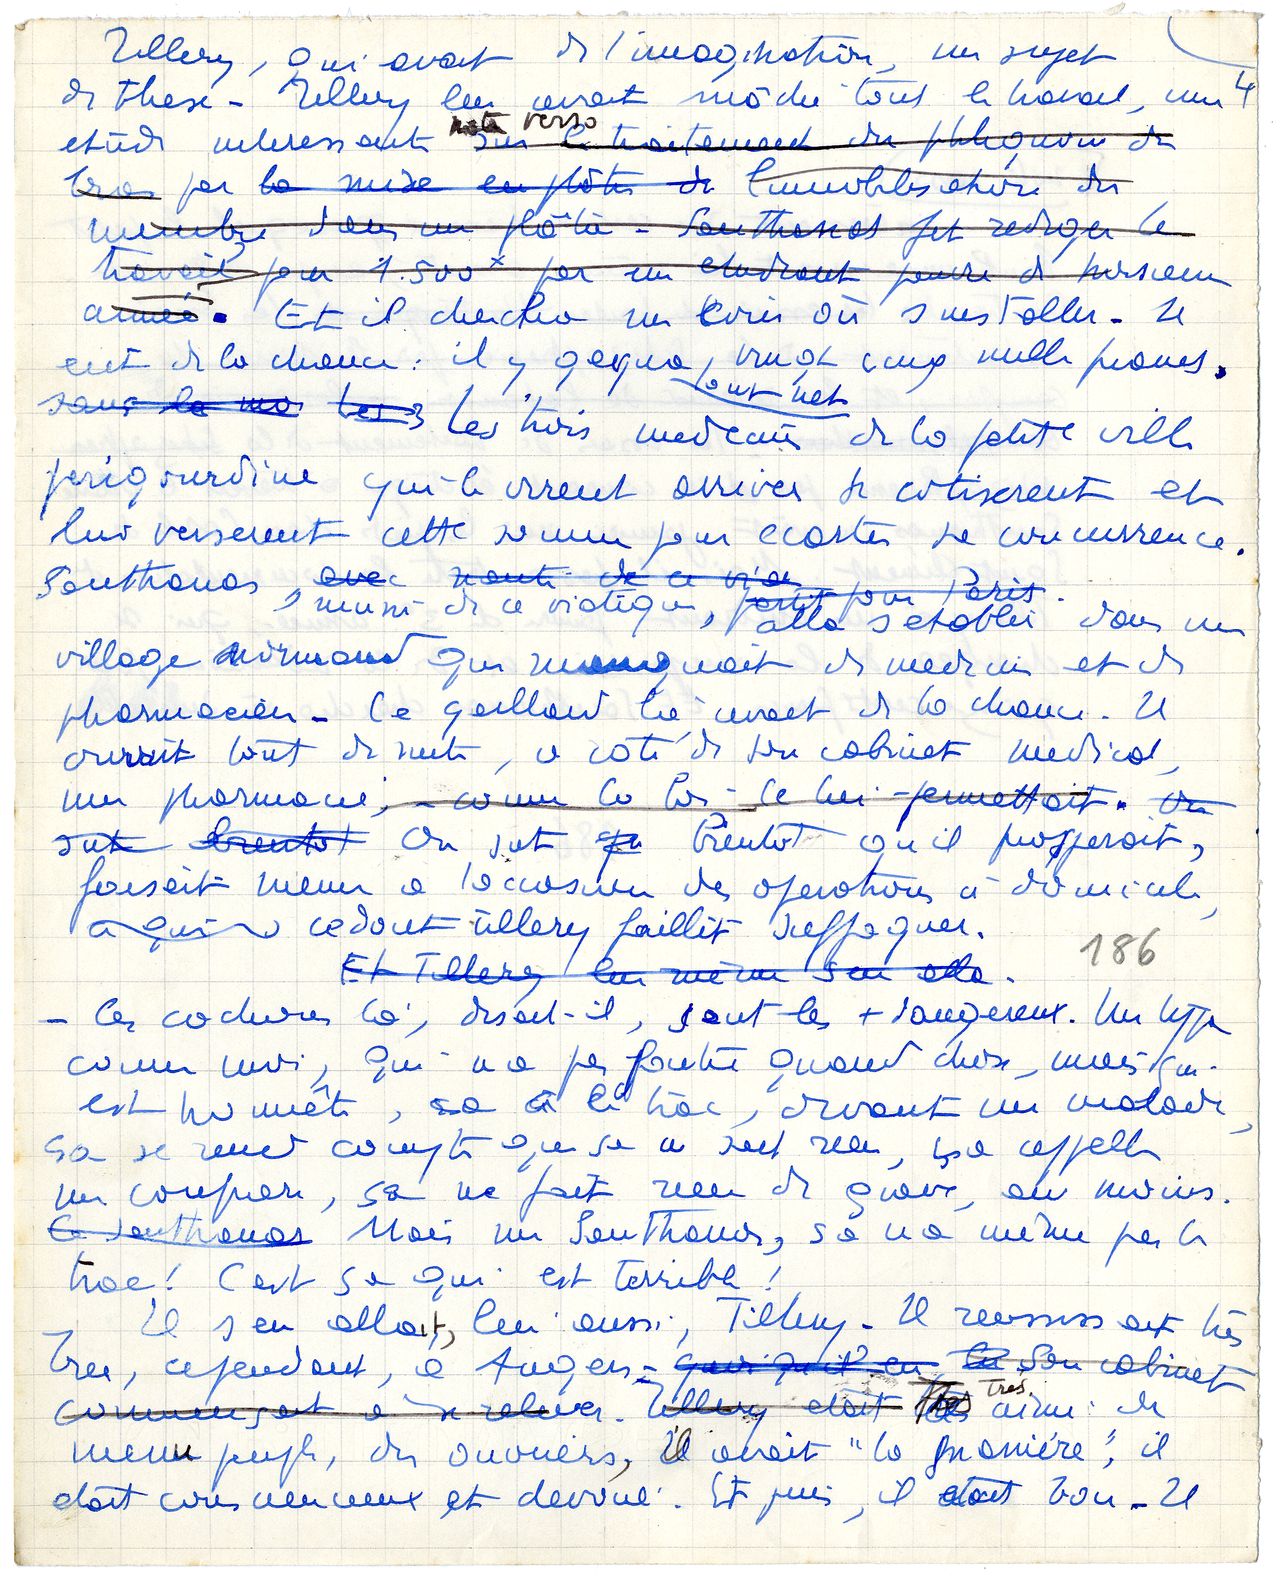 Tillery, qui avait de l'imagination, un sujet
de these - Tillery lui avait mâché tout le travail, une 4
note verso
etude interessante sur le traitement du phlegmon du
bras par la mise en plâtre de l'immobilisation du
membre dans un plâtre - Southanas fit rediger le
travail pour 1.500 x par un etudiant pauvre de
année. Et il chercha un coin où s'installer - Il
eut de la chance : il y gagna, vingt cinq mille francs.
tout net
sans le Les Les trois medecins de la petite ville
perigourdine qui le virent arriver se cotiserent et
lui verserent cette somme pour ecarter sa concurrence.
Southanas avec de ce via
, muni de ce viatique, partit pour Paris.
alla s'etablir dans un
village normand qui manquait de medecin et de
pharmacien - Ce gaillard là avait de la chance. Il
ouvrit tout de suite, à côté de son cabinet medical,
une pharmacie, - comme la loi le lui permettait. On
sut bientot On sut qu bientot qu'il prosperait,
faisait meme a l'occasion des operations à domicile,
a qui ce dont Tillery faillit suffoquer.
186
Et Tillery lui même s'en alla.
- Ces cochons là, disait-il, sont les + dangereux. Un type
comme moi, qui n'a pas foutu quand chose, mais qui
est honnête, sa a le trac, devant un malade,
sa se rend compte que sa n sait rien, sa appelle
un confrere, sa ne fait rien de grave, au moins.
Ce Southanas Mais un Southanas, sa n'a même pas le
trac ! C'est sa qui est terrible !
Il s'en allait, lui aussi, Tillery - Il reussissait très
bien, cependant, à Angers - en Son cabinet
commençait à se relever. Tillery etait très
Tres
aimé du
menu peuple, des ouvriers, il avait "la manière", il
etait consciencieux et devoué. Et puis, il etait bon - Il